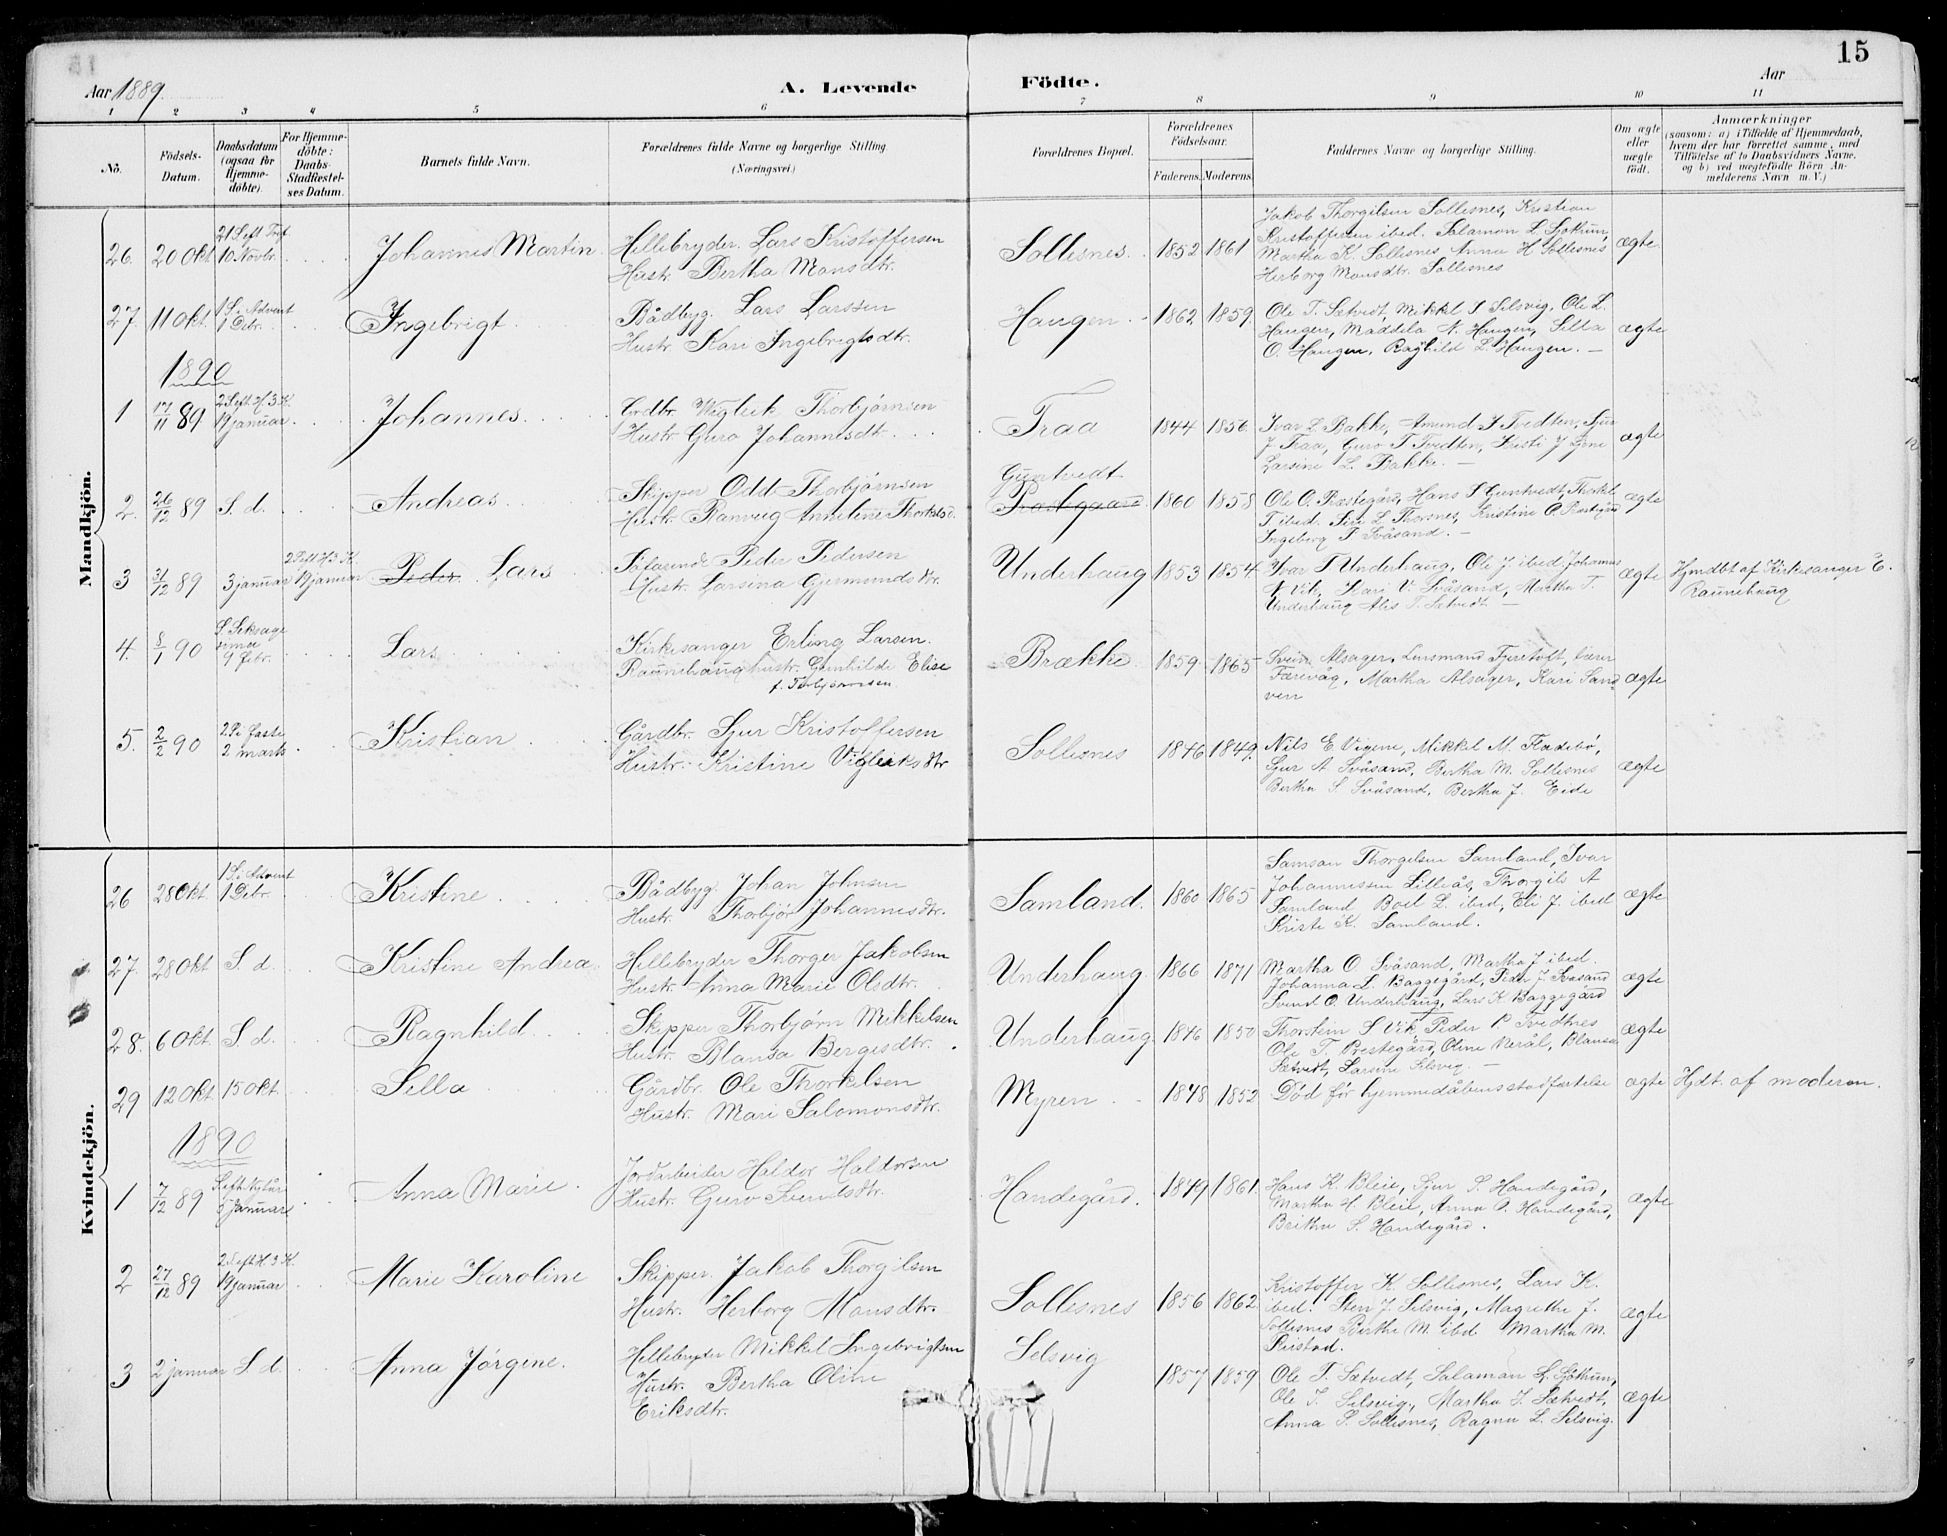 15
Aar 1889.
A. Levende Födte.
Aar
1 2 3 4 5 6 7 8 9 10 11
No.
Födsels-Datum.
Daabsdatum (ogsaa for Hjemme-döbte).
For Hjemme-döbte: Daabs-Stadfæstel-ses Datum.
Barnets fulde Navn.
Forældrenes fulde Navne og borgerlige Stilling.
(Næringsvei.)
Forældrenes Bopæl.
Forældrenes Födselsaar.
Faderens. Moderens.
Faddernes Navne og borgerlige Stilling.
Om ægte eller uægte födt.
Anmærkninger
(saasom: a) i Tilfælde af Hjemmedaab,
hvem der har forrettet samme, med
Tilföielse af to Daabsvidners Navne,
og b) ved uægtefödte Börn An-
melderens Navn m. V.)
Mandkjön.
26. 20 Okt. 21 S. eft. Trif. 10 Novbr. Johannes Martin Hillebryder Lars Kristoffersen
Hustr. Bertha Monsdtr.
Sollesnes. 1852 1861
Jakob Thorgilsen Sollesnes, Kristian
Kristoffersen ibed. Salamon L. Sjøthun,
Martha K. Sollesnes Anna H. Sollesnes
Herborg Monsdtr. Sollesnes
ægte
27. 11 Okt. 1 S. i Advent 1 Debr. Ingebrigt. Bådbyg. Lars Larssen
Hustr. Kari Ingebrigtsdtr.
Haugen 1862 1859
Ole T. Sætvedt, Mikkel S Selsvig, Ole L.
Haugen, Maddela N. Haugen, Sella
O. Haugen, Raghild L. Haugen. —
ægte
1890
1 17/11 89 2 S. eft. H. 3 K. 19 januar Johannes Grdbr. Viglik Thorbjørnsen
Hustr. Guro Johannesdt.
Traa 1844 1856
Ivar L. Bakke, Amund J Tvedten, Sjur
J. Traa, Guro T Tvedten, Kristi J Lione
Larsine L. Bakke. —
ægte
2. 26/12 89 S. d. Andreas Skipper Odd Thorbjørnsen
Hustr. Ranvug Annelene Thorkelsd.
Guntvedt
Præstgaard 1860 1858
Ole O. Præstegård, Hans S Guntvedt, Thorkel
T ibed. Siri L Thorsnes, Kristine O. Præstegård
Ingeberg T Svåsand. —
ægte
3 31/12 89 3 januar 2 S. eft H 3 K. 19 januar Peder Lars Søfarende Peder Pedersen
Hustr. Larsina Gjermunds dtr.
Underhaug 1853 1854
Ivar T Underhaug, Ole J ibed. Johannes
N Vik, Kari V. Svåsand, Martha T.
Underhaug Alis T. Sætvedt —
ægte
Hjmdbt af Kirkesanger E.
Raunehaug
4. 8/1 90 S. Seksage sima 9 febr. Lars Kirkesanger Erling Larsen
Raunehaug hustr. Gunhilde Elise
f. Torbjørnsen.
Brække. 1859 1865
Svein Alsager, Lensmand Fjeretoft, Lærer
Færevåg, Martha Alsager, Kari Sand
ven
ægte
5. 2/2 90 2 S. i faste 2 marts Kristian Gårdbr. Sjur Kristoffersen
Hustr. Kristine Vigleiksdtr
Sollesnes 1846 1849.
Nils E Vigene, Mikkel M. Fladebø,
Sjur A Svåsand, Bertha M. Sollesnes
Bertha S. Svåsand, Bertha J. Eide
ægte
Kvindekjön.
26 28 Okt. 1 S. i Advent 1 Debr. Kristine Bådbyg. Johan Johnsen
Hustr. Thorbjør Johannesdtr.
Samland. 1860 1865
Samson Thorgilsen Samland, Ivar
Johannessen Lilleås, Thorgils A
Samland Boel L. ibed, Eli J. ibed
Kristi K. Samland.
ægte
27. 28 Okt S. d. Kristine Andrea Hillebryder Thorger Jakobsen
Hustr. Anna Marie Olsdtr.
Underhaug 1866 1871
Martha O Svåsand, Martha J ibed.
Johanna L. Baggegård, Peder J. Svåsand
Svend O. Underhaug, Lars K Baggegård
ægte
28. 6 Okt. S d. Ragnhild Skipper Thorbjørn Mikkelsen
Hustr. Blansa Bergesdtr.
Underhaug 1846 1850
Thorstein S Vik Peder P Tvedtnes
Ole T. Prestegård, Oline Nerål, Blansa
Sætvedt, Larsine Selsvig. —
ægte
29 12 Okt. 15 Okt. Sella Gårdbr. Ole Thorkelsen
Hustr. Mari Salomonsdtr.
Myren 1848 1852
Død før hjemmedåbens stadfæstelse ægte Hjdt. af moderen.
1890
1 7/12 89 S. eft. Nytår 5 januar Anna Marie Jordarbeider Haldor Haldorsen
Hustr. Guro Svendsdtr.
Handegård. 1849 1861
Hans K. Bleie, Sjur S. Handegård,
Martha H. Bleie, Anna O. Handegård,
Britha S. Handegård.
ægte
2 27/12 89 2 S. eft H 3 K. 19 januar Marie Karoline Skipper Jakob Thorgilsen
Hustr. Herborg Monsdtr.
Sollesnes 1856 1862
Kristoffer K. Sollesnes, Lars K.
ibed. Sten J. Selsvig, Magrethe J.
Sollesnes Berthe M. ibd Martha M.
ægte
3 2 januar S d. Anna Jørgine. Hillebryder Mikkel Ingebrigtsen
Hustr. Bertha Oline
Eriksdtr.
Selsvig 1857 1859
Ole T. Sætvedt, Salaman L. Sjøthun,
Ole T. Selsvig, Martha J. Sætvedt,
Anna S. Sollesnes, Ragna L. Selsvig.
ægte